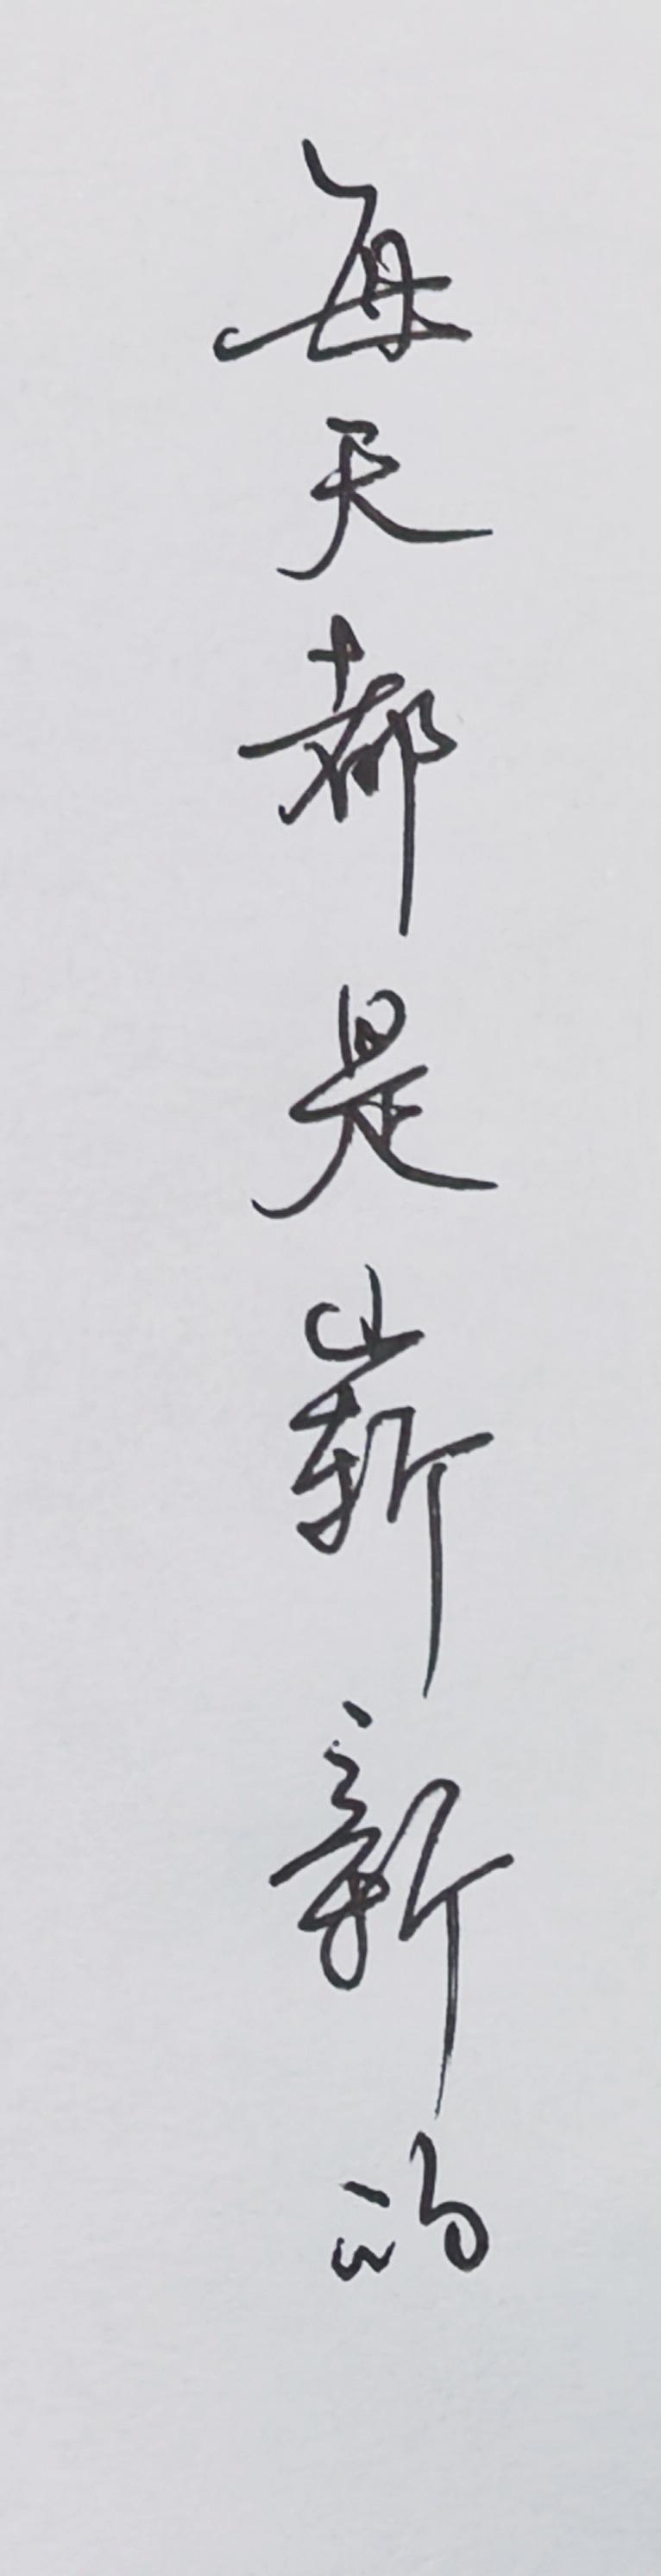 每天都是崭新的